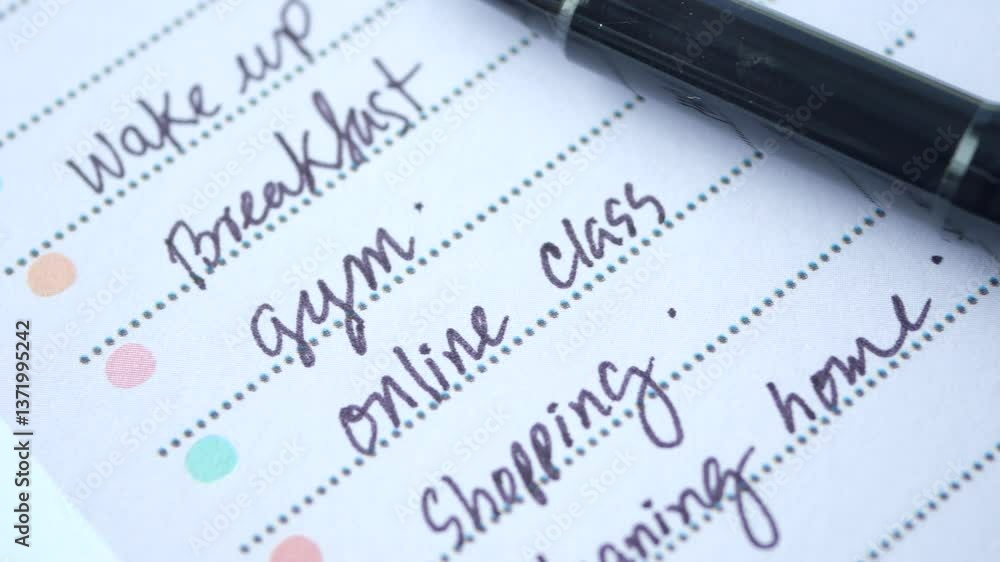 Wake up
Breakfast
Gym.
online class
Shopping
home
Adobe Stock | #1371995242